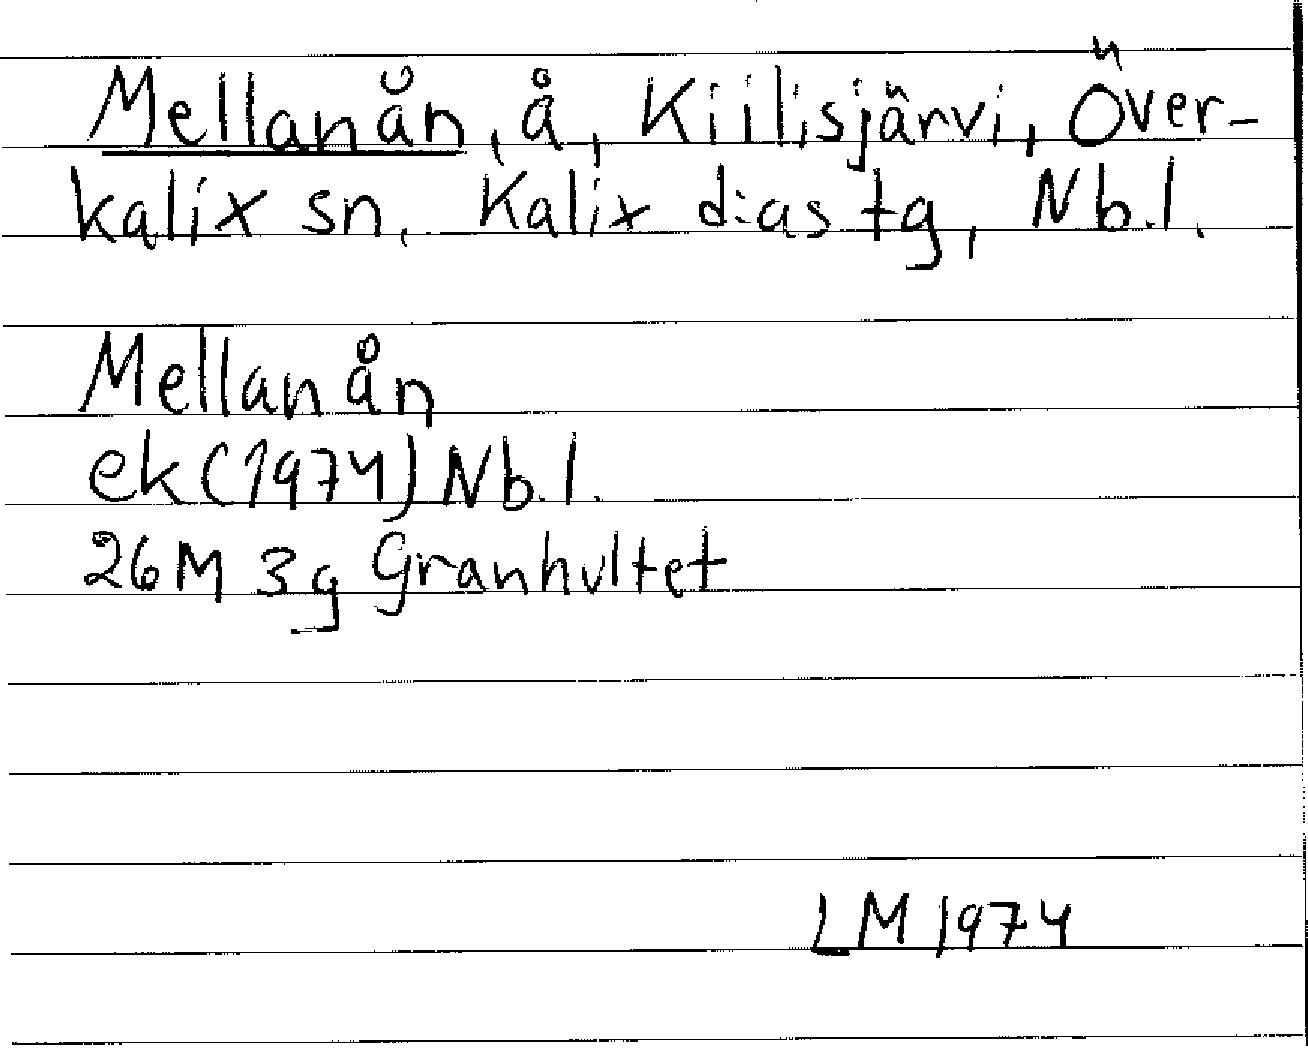 Mellanån, å, Kiilisjärvi, Över-
kalix sn, Kalix d:as tg, Nb.l.
Mellanån
ek (1974) Nb.l.
26M 3g Granhultet
LM 1974